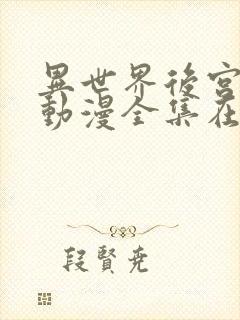 異世界後宮
動漫全集在
段賢堯